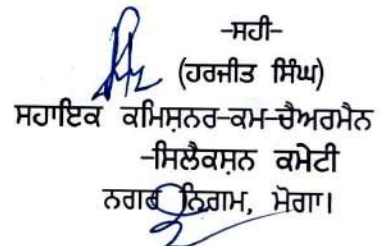 -ਸਹੀ-
(ਹਰਜੀਤ ਸਿੰਘ)
ਸਹਾਇਕ ਕਮਿਸ਼ਨਰ-ਕਮ-ਚੈਅਰਮੈਨ
-ਸਿਲੈਕਸ਼ਨ ਕਮੇਟੀ
ਨਗਰ ਨਿਗਮ, ਮੋਗਾ।